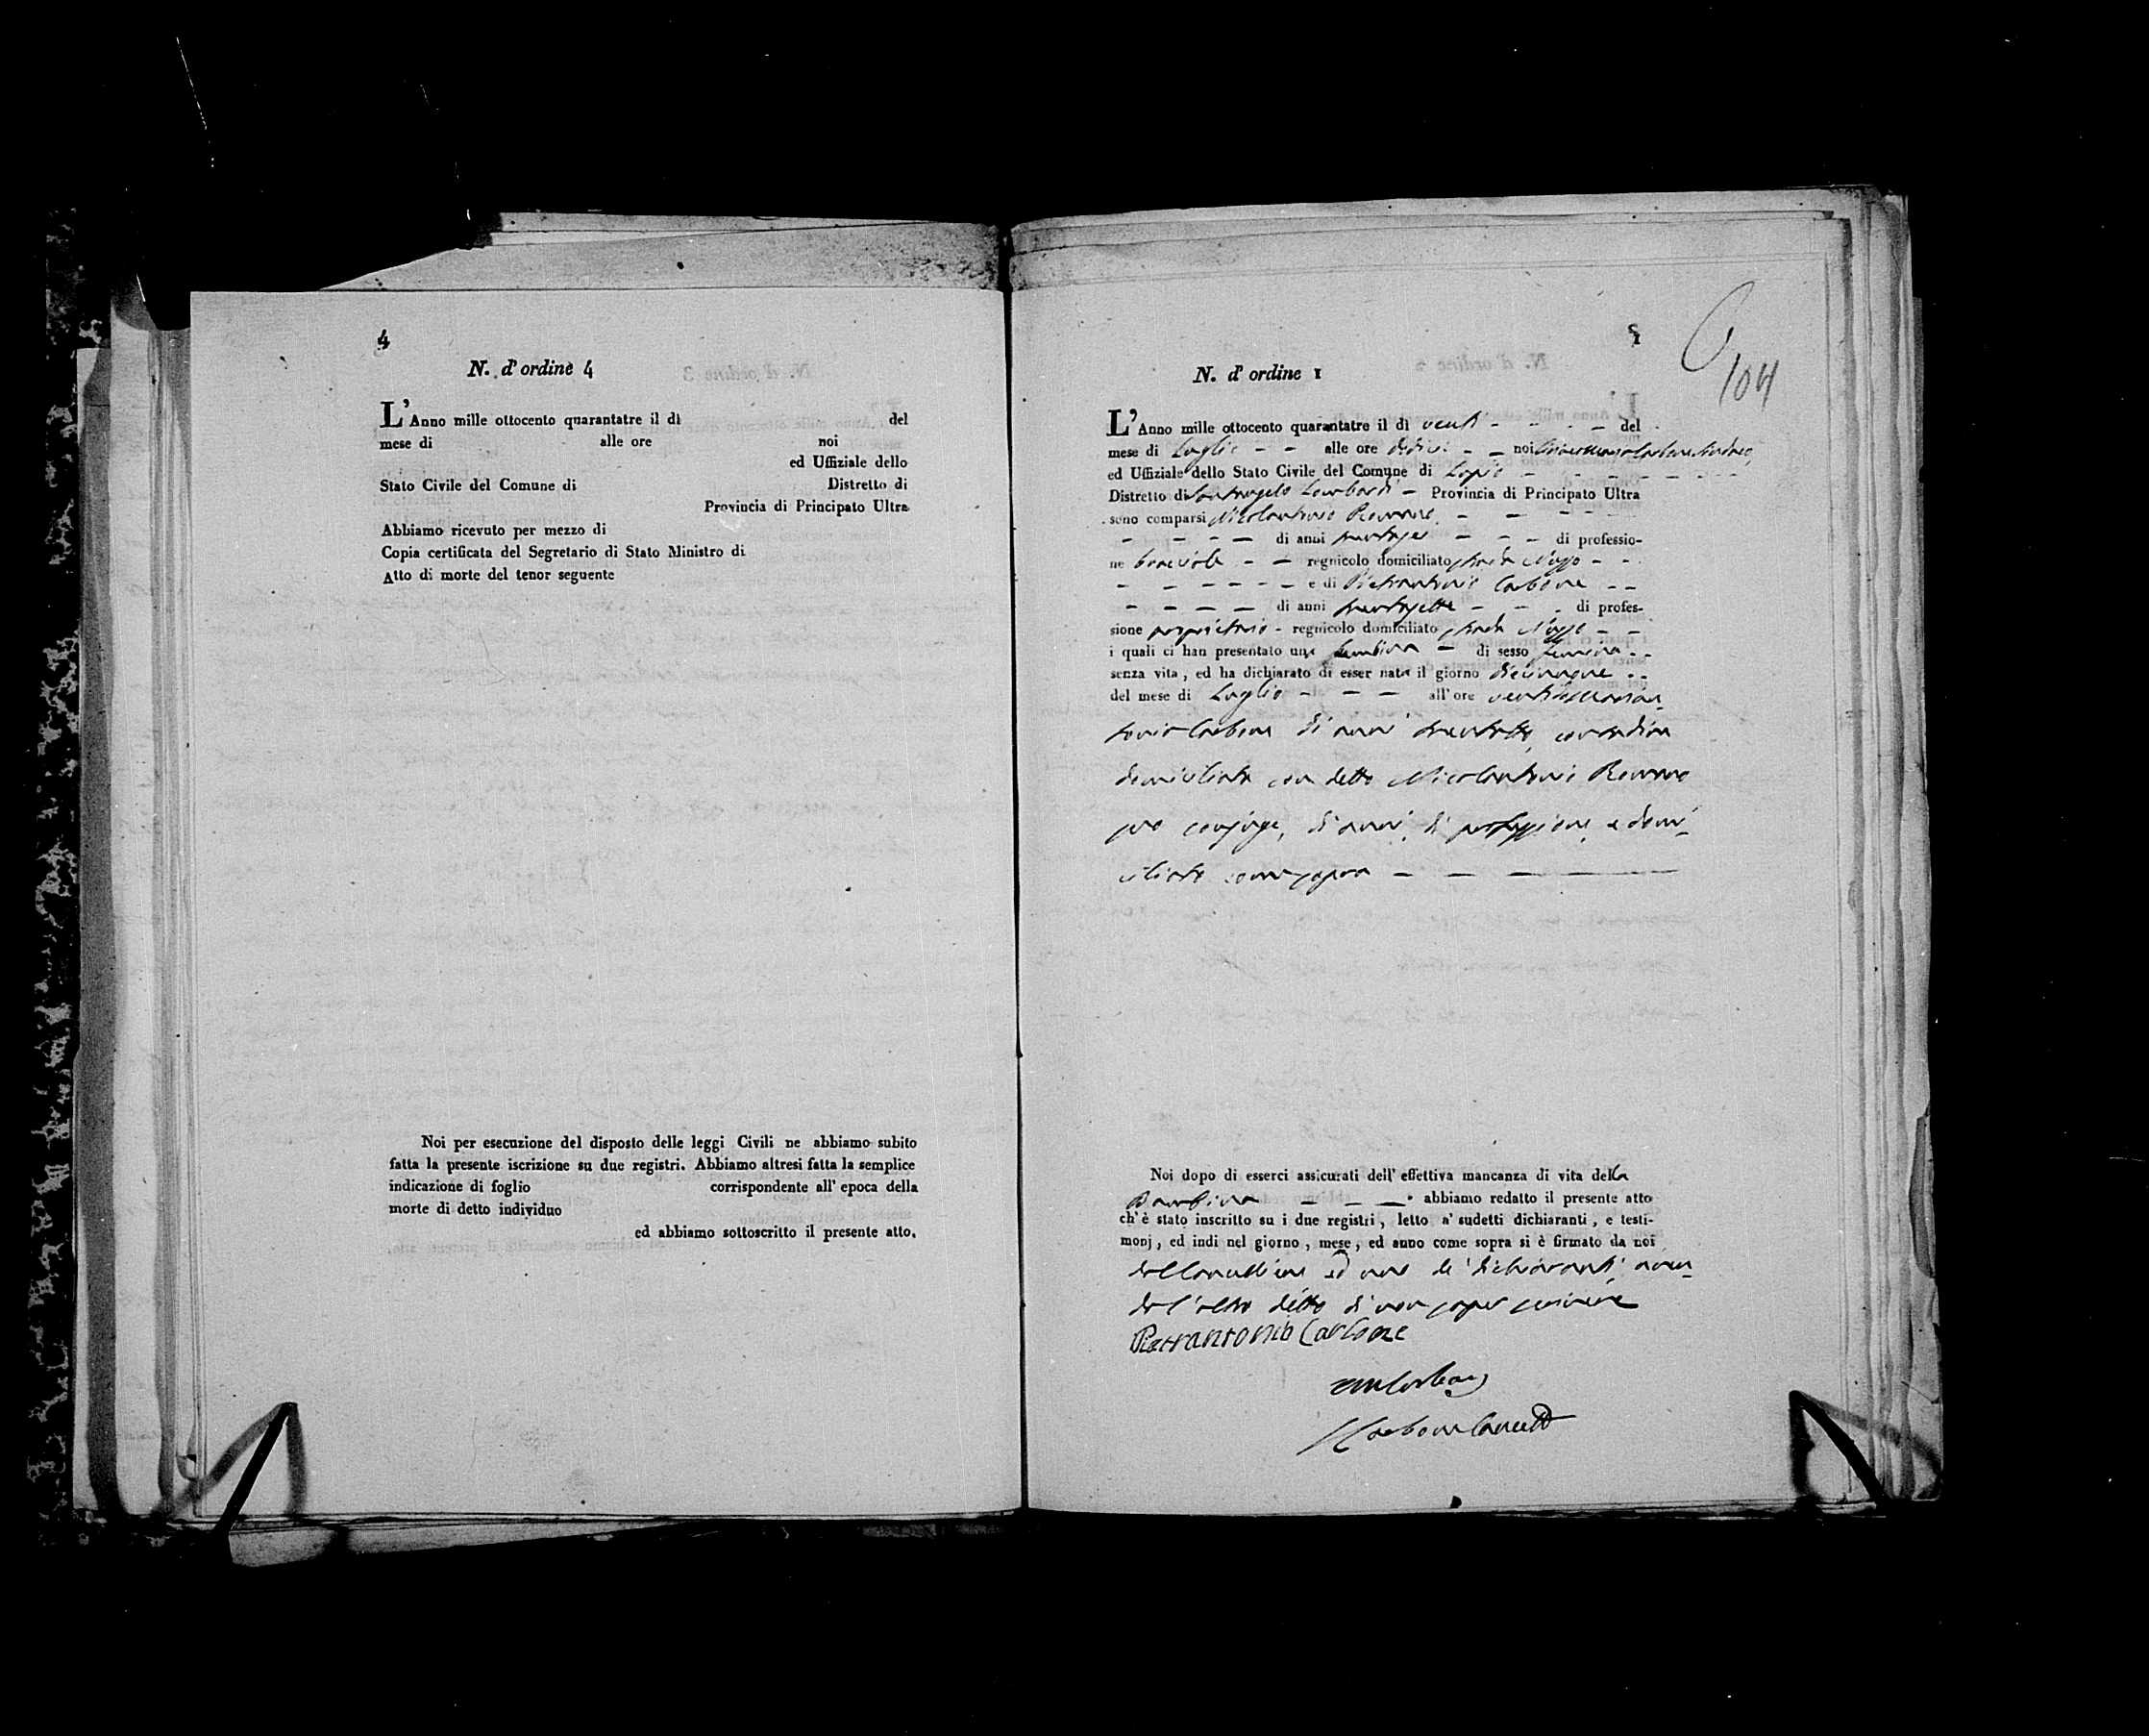 4
N. d'ordine 4
L'Anno mille ottocento quarantatre il dì del
mese di alle ore noi
ed Uffiziale dello
Stato Civile del Comune di Distretto di
Provincia di Principato Ultra
Abbiamo ricevuto per mezzo di
Copia certificata del Segretario di Stato Ministro di
Atto di morte del tenor seguente
Noi per esecuzione del disposto delle leggi Civili ne abbiamo subito
fatta la presente iscrizione su due registri. Abbiamo altresi fatta la semplice
indicazione di foglio corrispondente all' epoca della
morte di detto individuo
ed abbiamo sottoscritto il presente atto.
104
N. d' ordine 1
L'Anno mille ottocento quarantatre il dì venti - - - - del
mese di Luglio - - alle ore dodici - - noi
ed Uffiziale dello Stato Civile del Comune di Lapio - - - - - -
Distretto di Santangelo Lombardi - Provincia di Principato Ultra
sono comparsi Nicolantonio Romano - - - - -
- - - - di anni trentasei - - - di professio-
ne - - regnicolo domiciliato strada - -
- - - - - - e di Pietrantonio Carbone - -
- - - - di anni trentasette - - - di profes-
sione proprietario - regnicolo domiciliato strada - -
i quali ci han presentato una bambina - di sesso femina - -
senza vita, ed ha dichiarato di esser nata il giorno diecinnove - -
del mese di Luglio - - - all' ore
tonia Carbone di anni trentotto, contadina
domiciliata con detto Nicolantonio Romano
suo conjuge, di anni, di professione, e domi-
ciliato come sopra - - - -
Noi dopo di esserci assicurati dell' effettiva mancanza di vita della
Bambina - - - abbiamo redatto il presente atto
ch' è stato inscritto su i due registri, letto a' sudetti dichiaranti, e testi-
monj, ed indi nel giorno, mese, ed anno come sopra si è firmato da noi
dal Cancelliere ed uno de' dichiaranti, aven-
do l'altro detto di non saper scrivere
Pietrantonio Carbone
Carbone